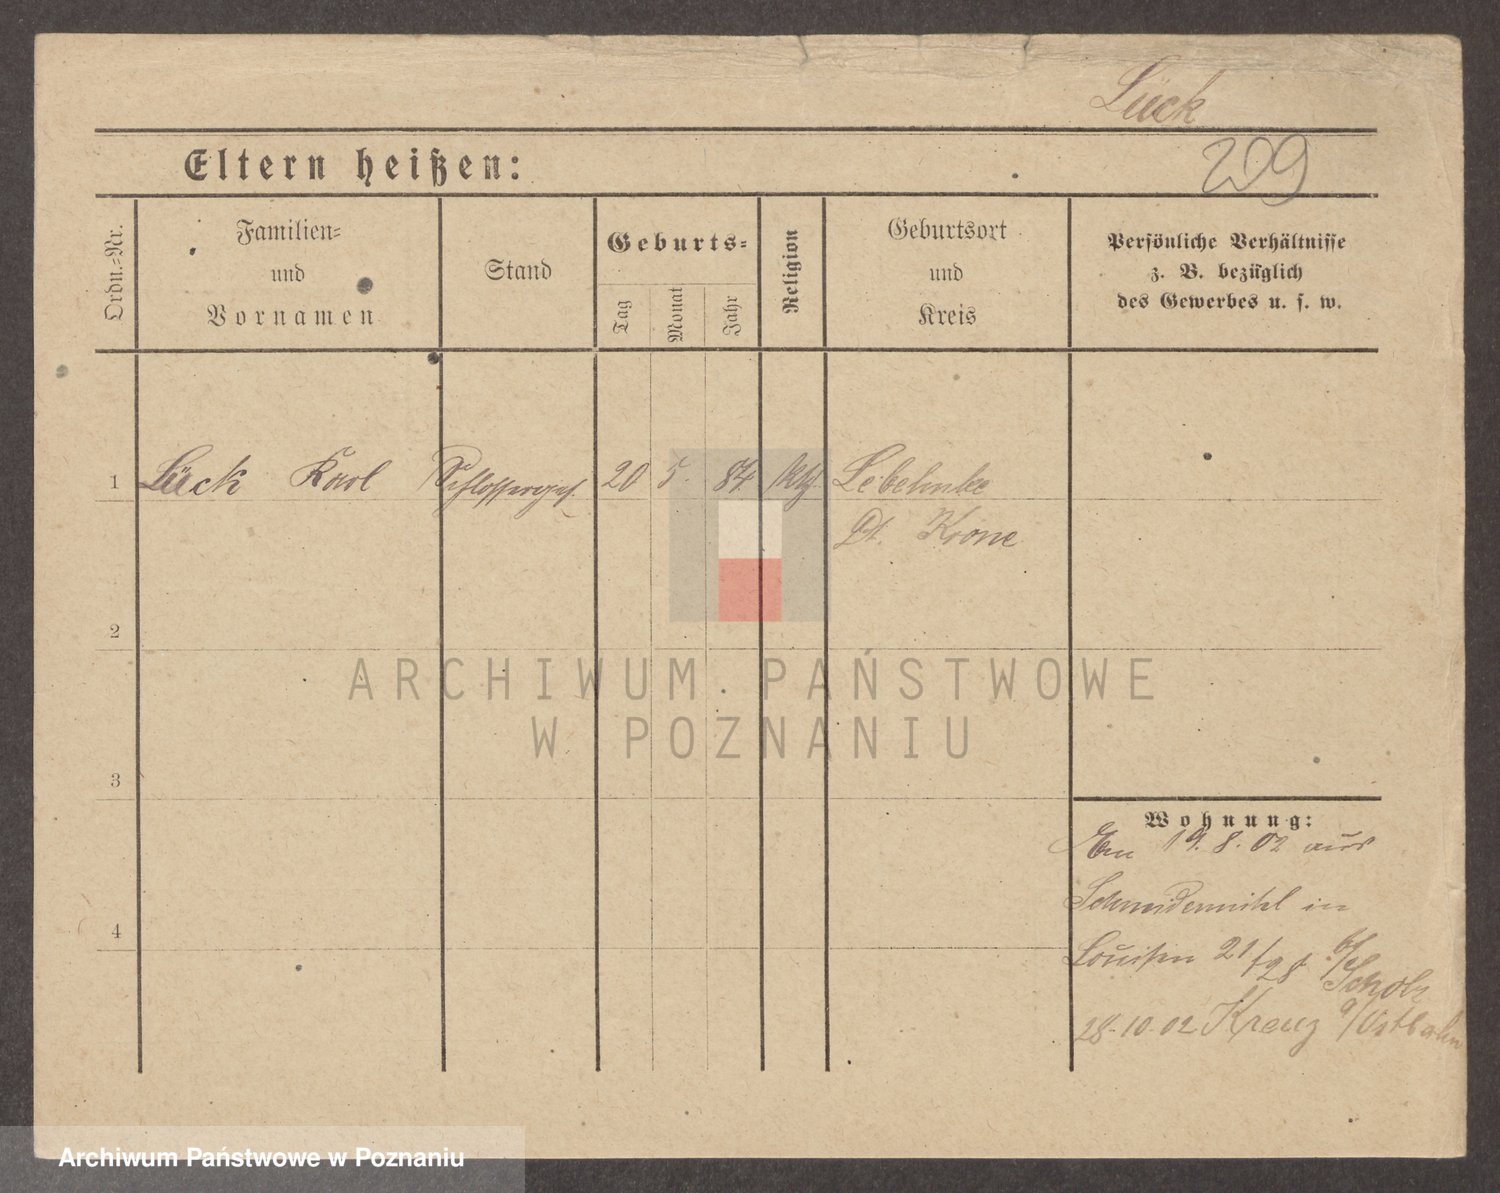 Lück
209
Eltern heißen:
Ordn.-Nr.
Familien-
und
Vornamen
Stand
Geburts-
Tag
Monat
Jahr
Religion
Geburtsort
und
Kreis
Persönliche Verhältnisse
z. B. bezüglich
des Gewerbes u. s. w.
1 Lück Karl Schlosserges. 20 5. 84. kth Lebehnke
Dt. Krone
2
3
4
Wohnung:
Em 19.8.02 aus
Schneidemühl in
Louisen 21/28 b/
Scholz
28.10.02 Kreuz a/Ostbahn
ARCHIWUM PAŃSTWOWE
W POZNANIU
Archiwum Państwowe w Poznaniu